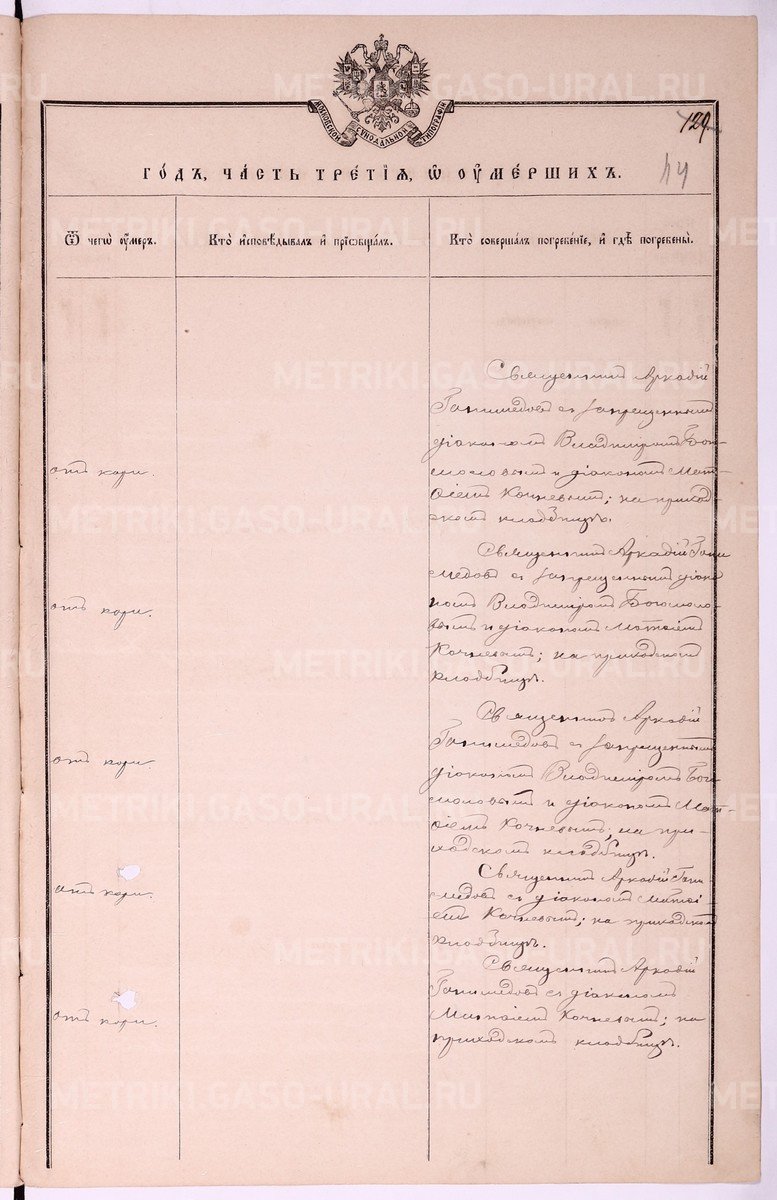 МОСКОВСКОЙ СѴНОДАЛЬНОЙ ТИПОГРАФІИ
129
44
ГО́ДЪ, ЧА́СТЬ ТРЕ́ТІѦ, Ѽ ОУ҆МЕ́РШИХЪ.
Ѿ чегѡ̀ оу҆́меръ.
Кто̀ и҆сповѣ́дывалъ и҆ прїѡбща́лъ.
Кто̀ соверша́лъ погребе́нїе, и҆ гдѣ̀ погребены̀.
Священникъ Аркадій
Ганимедовъ съ запрещеннымъ
діакономъ Владиміромъ Бого-
моловымъ и діакономъ Мат-
ѳіемъ Кочневымъ; на приход-
скомъ кладбищѣ.
отъ кори.
Священникъ Аркадій Гани
медовъ съ запрещеннымъ діако
номъ Владиміромъ Богомоло-
вымъ и діакономъ Матѳіемъ
Кочневымъ; на приходскомъ
кладбищѣ.
отъ кори.
Священникъ Аркадій
Ганимедовъ съ запрещеннымъ
діакономъ Владиміромъ Бого
моловымъ и діакономъ Мат-
ѳіемъ Кочневымъ; на при-
ходскомъ кладбищѣ.
отъ кори.
Священникъ Аркадій Гани
медовъ съ діакономъ Матѳі
емъ Кочневымъ; на приходском
кладбищѣ.
отъ кори.
Священникъ Аркадій
Ганимедовъ съ діакономъ
Матѳіемъ Кочневымъ; на
приходскомъ кладбищѣ.
отъ кори.
METRIKI.GASO-URAL.RU